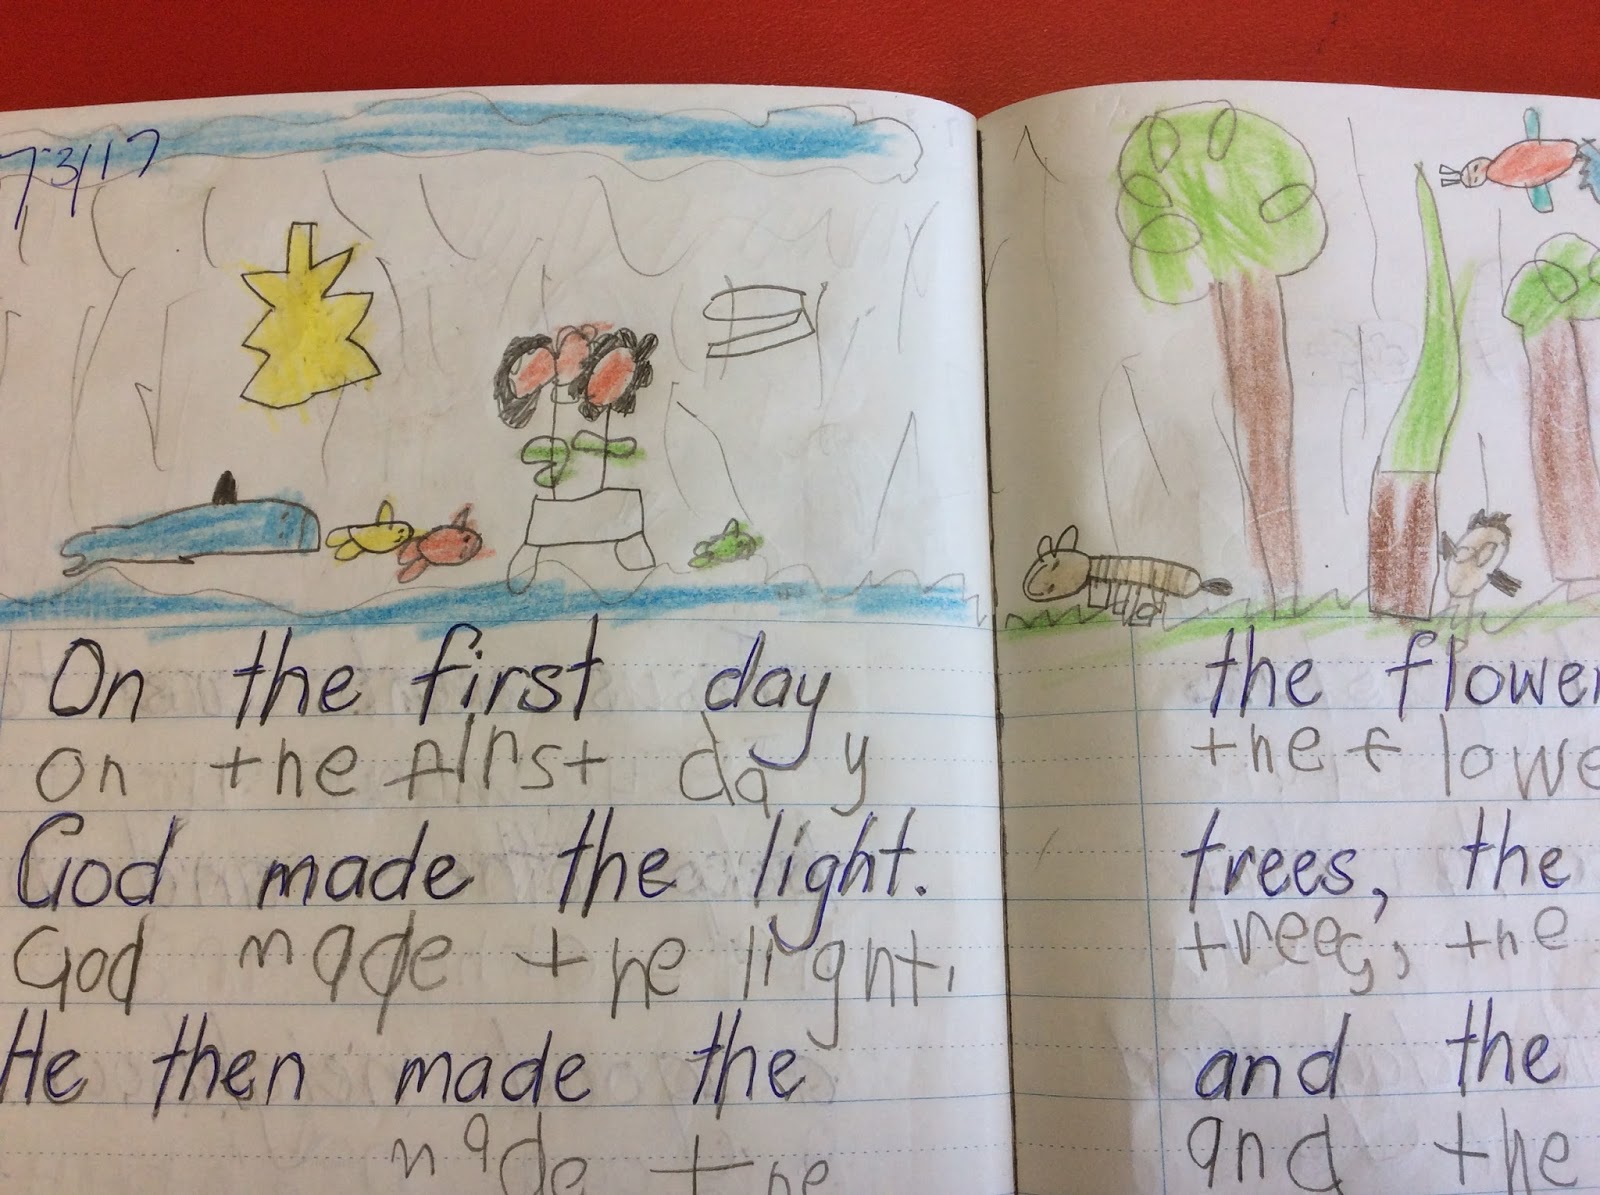 7/3/17
On the first day
on the first day
God made the light.
God made the light.
He then made the
made the
the flower
the flowe
trees, the
trees, the
and the
and the